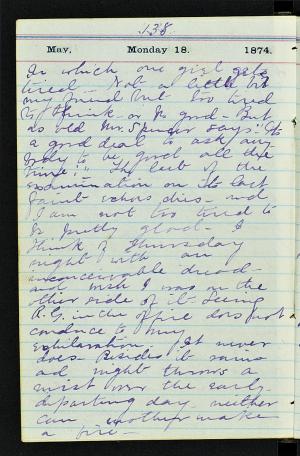 138.
May. Monday 18. 1874.
In which one girl gets
tired - Not a little bit
my friend but too tired
to think - or be good - But
as old Mr. Spencer says: "Its
a good deal to ask any
body to be good all the
time." - The last of the
examination on its last
faint echos dies - and
I am not too tired to
be pretty glad - I
think of Thursday
night with an
inconceivable dread -
and wish I was on the
other side of it. Seeing
R.G. in the office does not
conduce to my
exhileration. It never
does. Besides it rains
and night throws a
mist over the early
departing day - neither
can mother make
a fire -